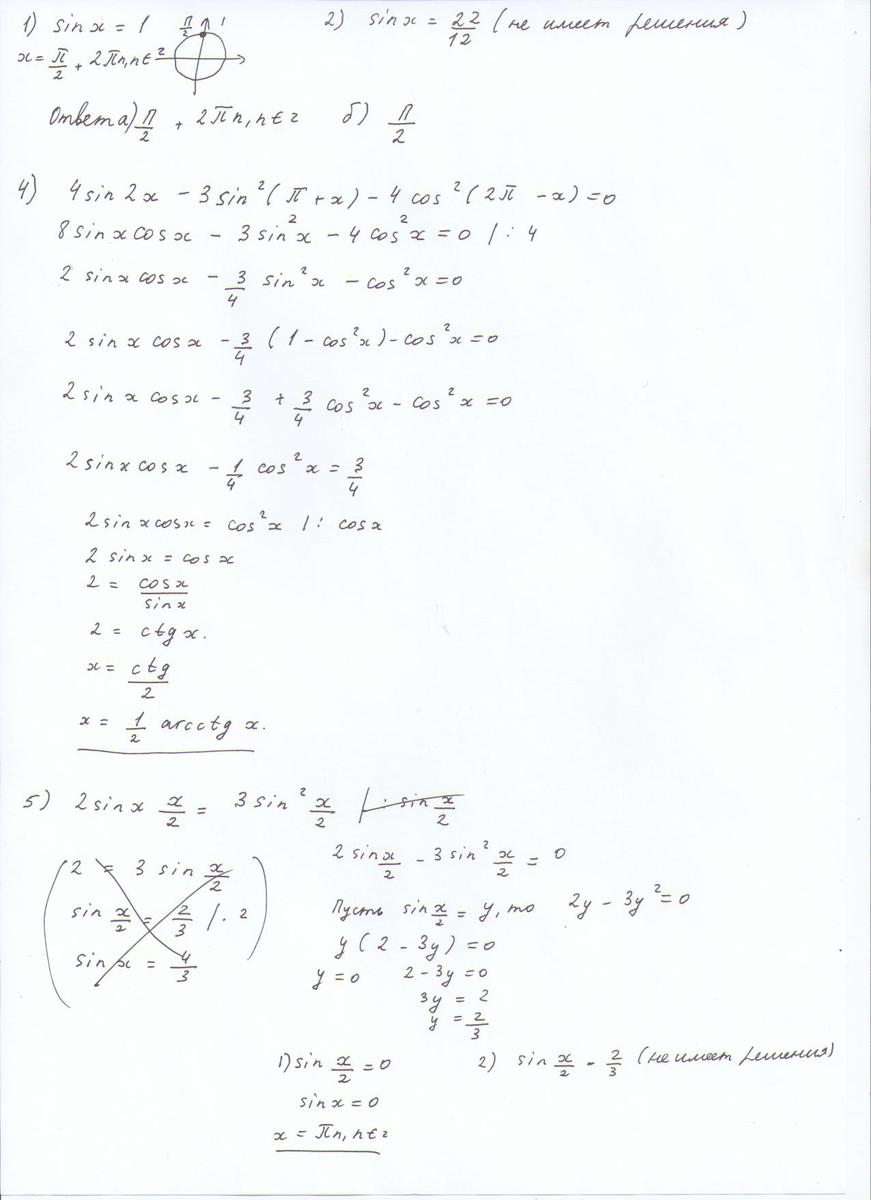 1) sin x = 1 π/2 1
x = π/2 + 2πn, n ∈ z
2) sin x = 22/12 (не имеет решения)
Ответ а) π/2 + 2πn, n ∈ z б) π/2
4) 4 sin 2x - 3 sin²(π + x) - 4 cos²(2π - x) = 0
8 sin x cos x - 3 sin²x - 4 cos²x = 0 / : 4
2 sin x cos x - 3/4 sin²x - cos²x = 0
2 sin x cos x - 3/4 (1 - cos²x) - cos²x = 0
2 sin x cos x - 3/4 + 3/4 cos²x - cos²x = 0
2 sin x cos x - 1/4 cos²x = 3/4
2 sin x cos x = cos²x / : cos x
2 sin x = cos x
2 = cos x/sin x
2 = ctg x.
x = ctg/2
x = 1/2 arcctg x.
5) 2 sin x x/2 = 3 sin² x/2 / : sin x/2
(2 = 3 sin x/2
sin x/2 = 2/3 / . 2
sin x = 4/3)
2 sin x/2 - 3 sin² x/2 = 0
Пусть sin x/2 = y, то 2y - 3y² = 0
y (2 - 3y) = 0
y = 0 2 - 3y = 0
3y = 2
y = 2/3
1) sin x/2 = 0
sin x = 0
x = πn, n ∈ z
2) sin x/2 = 2/3 (не имеет решения)